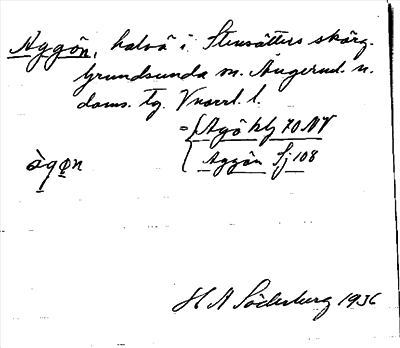 Aggön, halvö i Stensätters skärg.
Grundsunda sn. Ångerml. n.
doms. tg. Vnorrl. l.
= { Agö hlf 70 NV
Aggön Sj 108
àgøn
H A Söderberg 1936